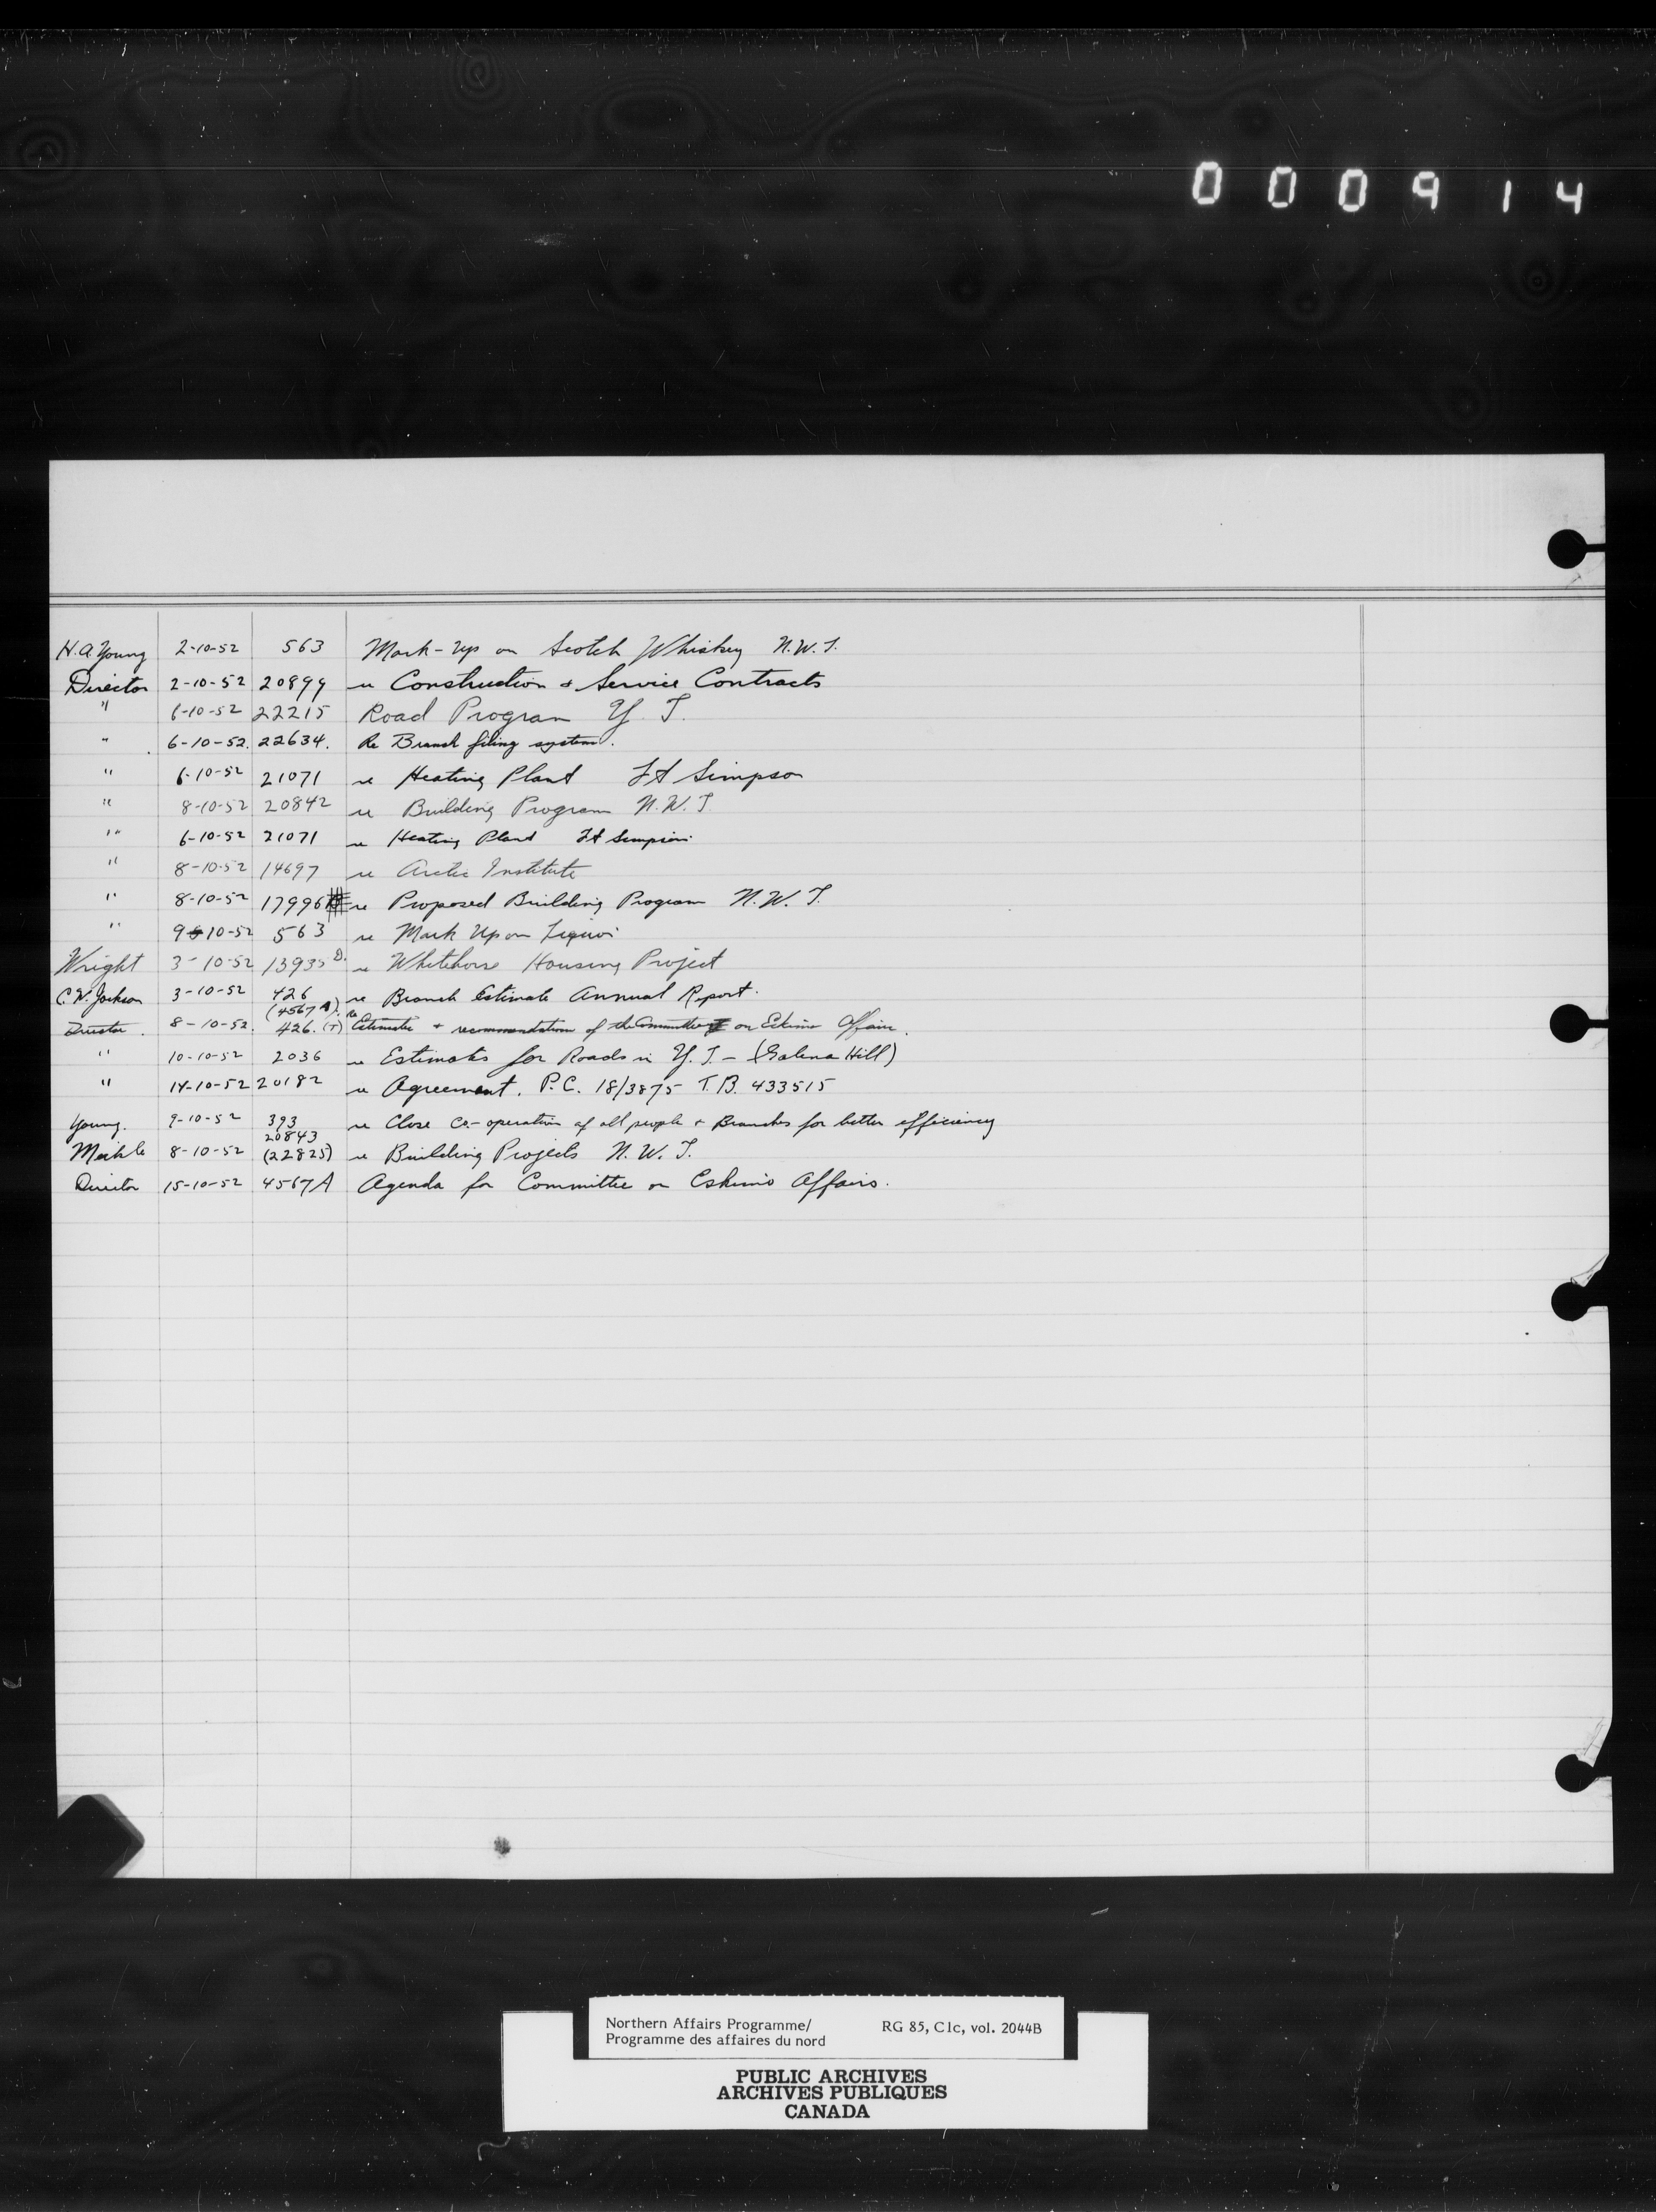 000914
H.A. Young 2-10-52 563 Mark-Up on Scotch Whiskey N.W.T.
Director 2-10-52 20899 re Construction & Service Contracts
" 6-10-52 22215 Road Program Y.T.
" 6-10-52. 22634. Re Branch filing system.
" 6-10-52 21071 re Heating Plant Ft Simpson
" 8-10-52 20842 re Building Program N.W.T.
" 6-10-52 21071 re Heating Plant Ft Simpson
" 8-10-52 14697 re Arctic Institute
" 8-10-52 17996 re Proposed Building Program N.W.T.
" 9-10-52 563 re Mark Up on Liquor
Wright 3-10-52 13935 D. re Whitehorse Housing Project
C.W. Jackson 3-10-52 426 re Branch Estimate Annual Report.
(4567 A). re
Director. 8-10-52. 426. (T) Estimates + recommendation of the Committee on Eskimo Affairs.
" 10-10-52 2036 re Estimates for Roads in Y.T. - (Galena Hill)
" 14-10-52 20182 re Agreement. P.C. 18/3875 T.B. 433515
Young. 9-10-52 393 re Close Co-operation of all people & Branches for better efficiency
20843
Meikle 8-10-52 (22825) re Building Projects N.W.T.
Director 15-10-52 4567A Agenda for Committee on Eskimo Affairs.
Northern Affairs Programme/ RG 85, C1c, vol. 2044B
Programme des affaires du nord
PUBLIC ARCHIVES
ARCHIVES PUBLIQUES
CANADA